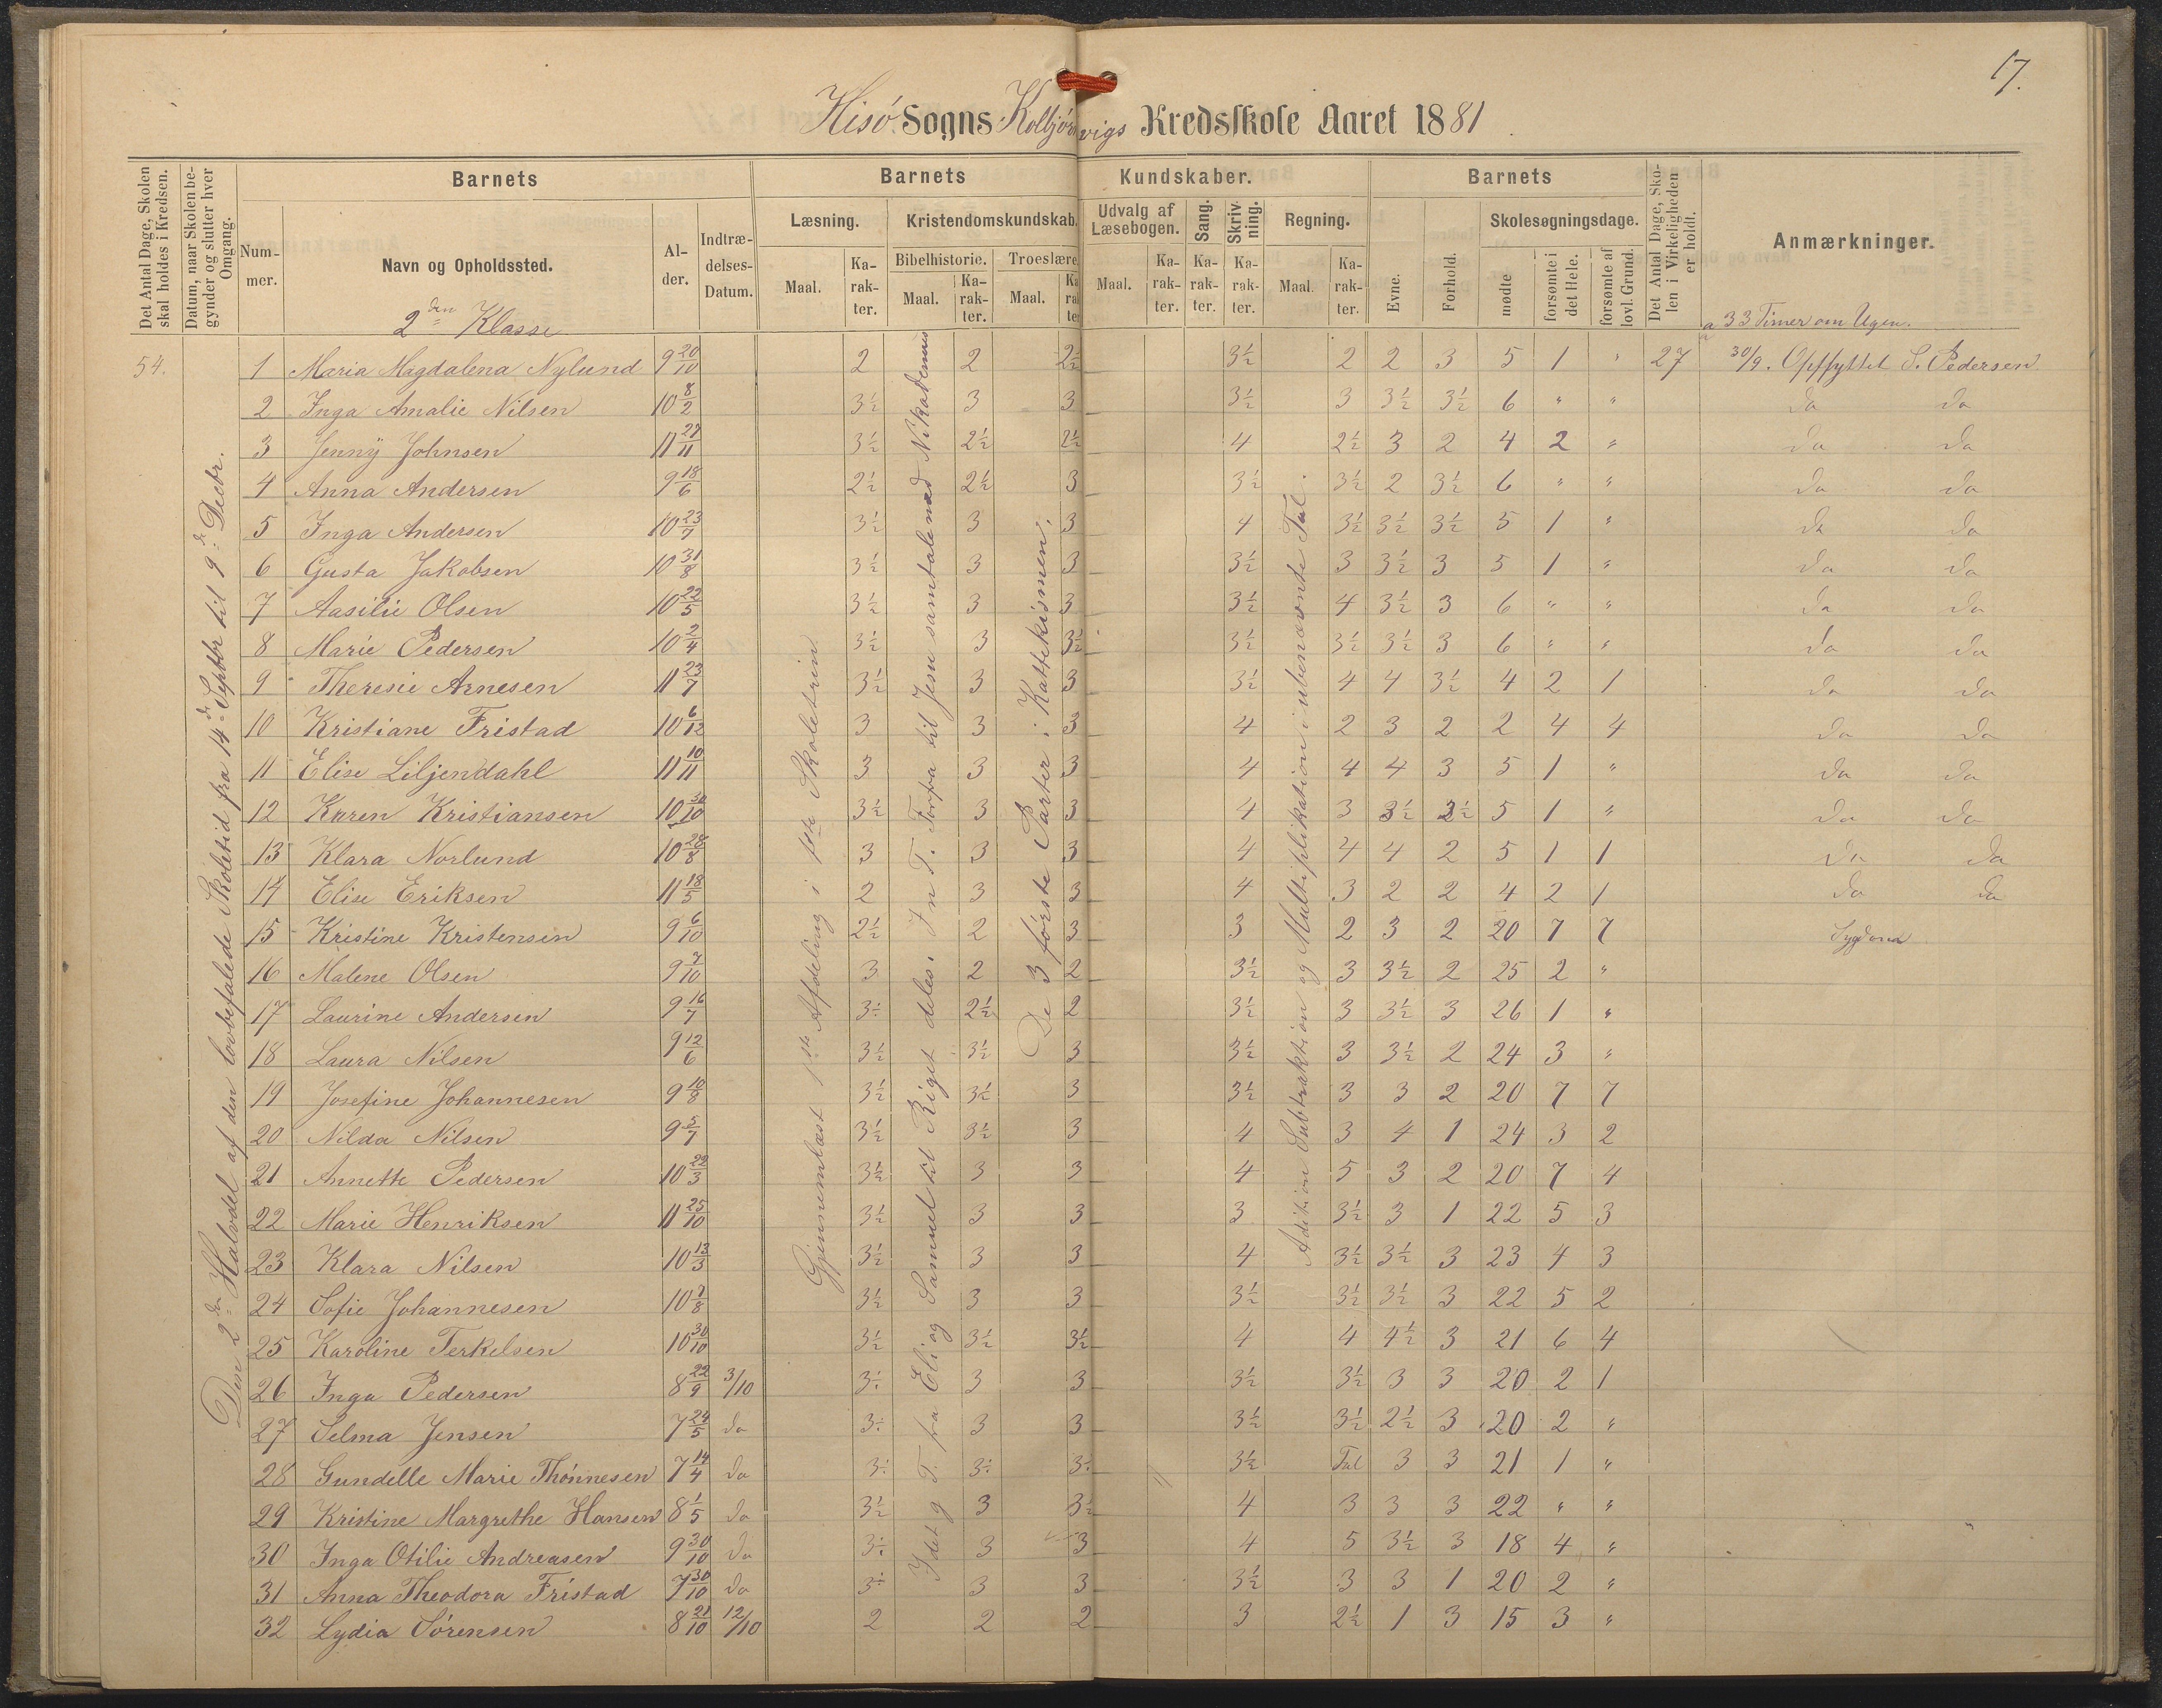 17.
Hisö Sogns Kolbjörnvigs Kredsskole Aaret 1881
Det Antal Dage, Skolen skal holdes i Kredsen.
Datum, naar Skolen begynder og slutter hver Omgang.
Nummer.
Barnets
Navn og Opholdssted.
Alder.
Indtrædelses-Datum.
Barnets Kundskaber.
Læsning.
Maal.
Karakter.
Kristendomskundskab.
Bibelhistorie.
Maal.
Karakter.
Troeslære
Maal.
Udvalg af Læsebogen.
Maal.
Karakter.
Sang.
Karakter.
Skrivning.
Karakter.
Regning.
Maal.
Karakter.
Barnets
Evne.
Forhold.
Skolesøgningsdage.
mødte
forsømte i det Hele.
forsømte af lovl. Grund.
Det Antal Dage, Skolen i Virkeligheden er holdt.
Anmærkninger.
2den Klasse
a 33 Timer om Ugen.
54.
Dese 2den Halvdel af den lovbefalede Skoletid fra 14de Septbr til 9de Decbr.
Gjennemlæst 1ste Afdeling i 1ste Skoletrin
I det g. T. fra Eli og Samuel til Riget deles. I n T. Forfra til Jesu samtale med Nikodemus
De 3 første Parter i Kattekismen.
Adition Subtraktion og Multiplikation i ubenævnte Tal.
1 Maria Magdalena Nylund 9 20/10 2 2 2½ 3½ 2 2 3 5 1 " 27 30/9. Opflyttet S. Pedersen
2 Inga Amalie Nilsen 10 8/2 3½ 3 3 3½ 3 3½ 3½ 6 " " da da
3 Jenny Johnsen 11 27/11 3½ 2½ 2½ 4 2½ 3 2 4 2 " da da
4 Anna Andersen 9 18/6 2½ 2½ 3 3½ 3½ 2 3½ 6 " " da da
5 Inga Andersen 10 23/7 3½ 3 3 4 3½ 3½ 3½ 5 1 " da da
6 Gusta Jakobsen 10 31/8 3½ 3 3 3½ 3 3½ 3 5 1 " da da
7 Aasilie Olsen 10 22/5 3½ 3 3 3½ 4 3½ 3 6 " " da da
8 Marie Pedersen 10 2/4 3½ 3 3½ 3½ 3½ 3½ 3 6 " " da da
9 Theresie Arnesen 11 23/7 3½ 3 3 3½ 4 4 3½ 4 2 1 da da
10 Kristiane Fristad 10 6/12 3 3 3 4 2 3 2 2 4 4 da da
11 Elise Liljendahl 11 10/11 3 3 3 4 4 4 3 5 1 " da da
12 Karen Kristiansen 10 30/10 3½ 3 3 4 3 3½ 2½ 5 1 " da da
13 Klara Norlund 10 28/8 3 3 3 4 4 4 2 5 1 1 da da
14 Elise Eriksen 11 18/5 2 3 3 4 3 2 2 4 2 1 da da
15 Kristine Kristensen 9 6/10 2½ 2 3 3 2 3 2 20 7 7 Sygdom
16 Malene Olsen 9 7/10 3 2 2 3½ 3 3½ 2 25 2 "
17 Laurine Andersen 9 16/7 3÷ 2½ 2 3½ 3 3½ 3 26 1 "
18 Laura Nilsen 9 12/6 3½ 3½ 3 3½ 3 3½ 2 24 3 "
19 Josefine Johannesen 9 10/8 3½ 3½ 3 3½ 3 3 2 20 7 7
20 Nilda Nilsen 9 5/7 3½ 3½ 3 4 3 4 1 24 3 2
21 Annette Pedersen 10 22/3 3½ 3 3 4 5 3 2 20 7 4
22 Marie Henriksen 11 25/10 3½ 3 3 3 3½ 3 1 22 5 3
23 Klara Nilsen 10 13/3 3½ 3 3 4 3½ 3½ 3 23 4 3
24 Sofie Johannesen 10 7/8 3½ 3 3 3½ 3½ 3½ 3 22 5 2
25 Karoline Terkelsen 10 30/10 3½ 3½ 3½ 4 4 4½ 3 21 6 4
26 Inga Pedersen 8 22/9 3/10 3÷ 3 3 3½ 3½ 3 3 20 2 1
27 Selma Jensen 7 24/5 da 3÷ 3 3 3½ 3½ 2½ 3 20 2 "
28 Gundelle Marie Thönnesen 7 14/4 da 3÷ 3÷ 3÷ 3½ Tal 3 3 21 1 "
29 Kristine Margrethe Hansen 8 1/5 da 3½ 3 3½ 4 3 3 3 22 " "
30 Inga Otilie Andreasen 9 30/10 da 3÷ 3 3 4 5 3½ 3 18 4 "
31 Anna Theodora Fristad 7 30/10 da 3÷ 3 3 3½ 3 3 1 20 2 "
32 Lydia Sörensen 8 21/10 12/10 2 2 2 3 2½ 1 3 15 3 "